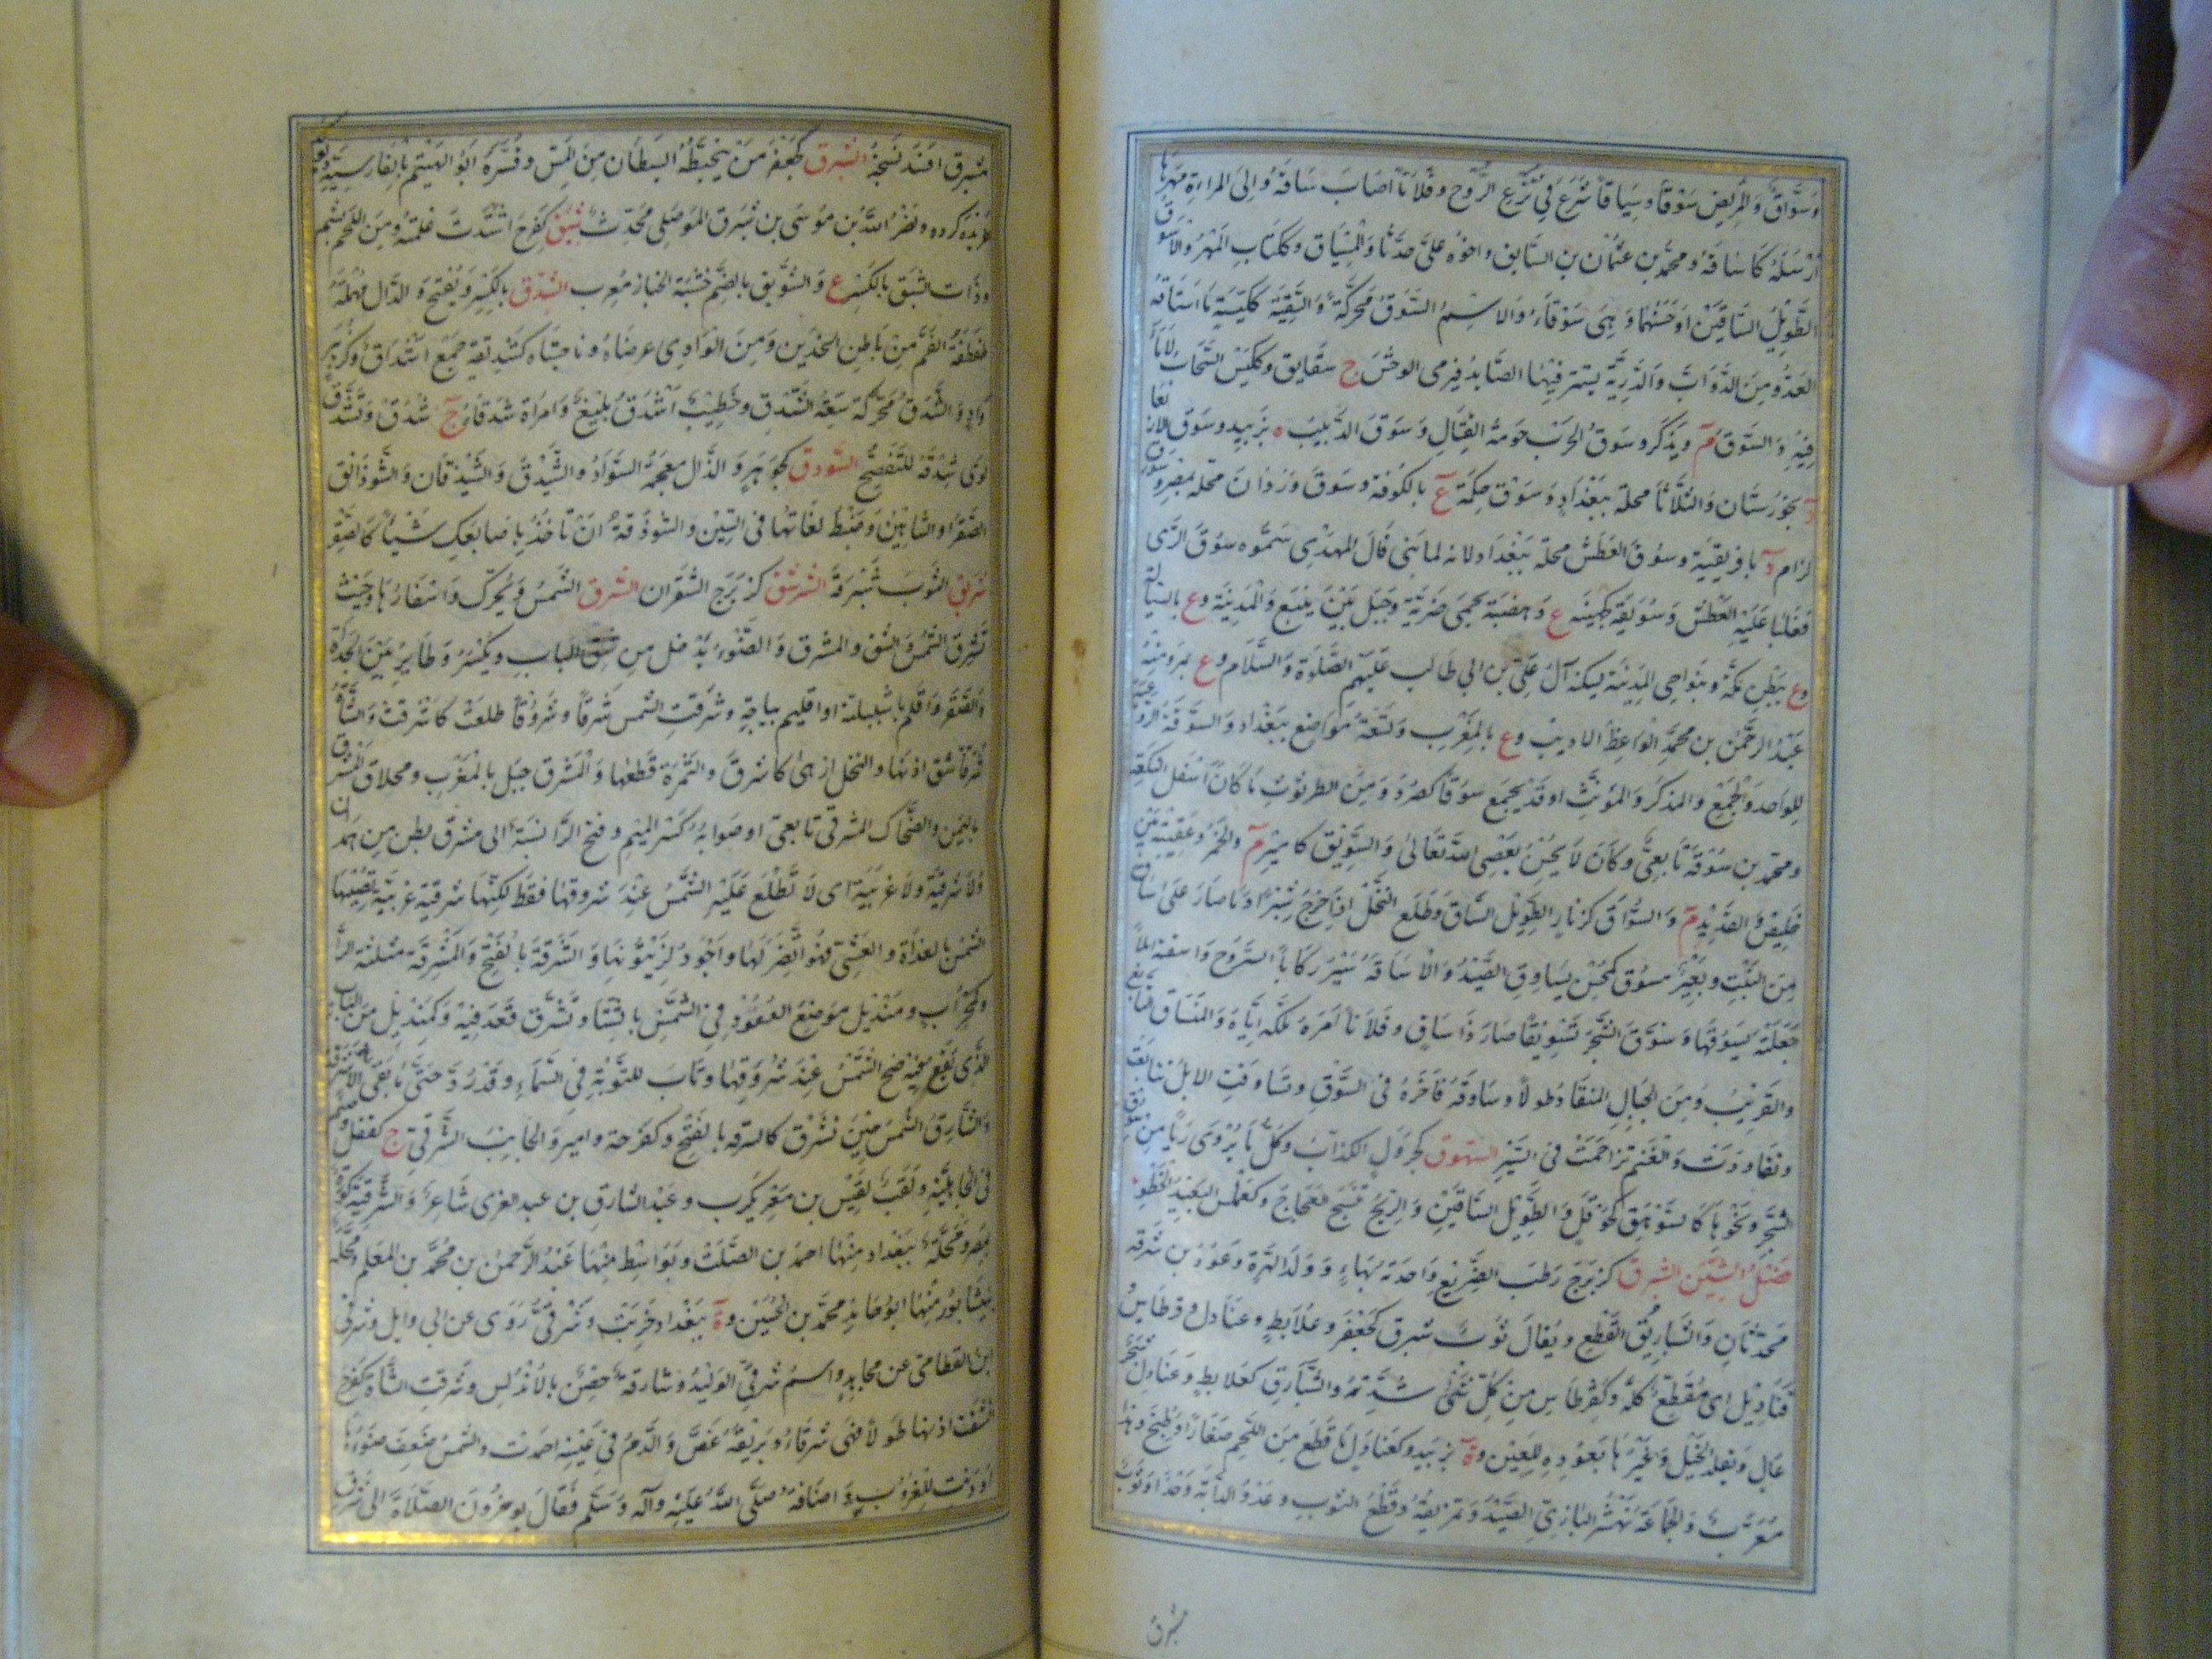 وَسَوَّاقٌ وَالمَرِيضُ سَوْقًا وسِيَاقًا شَرَعَ فِي نَزْعِ الرُّوحِ وفُلَانًا اَصَابَ سَاقَهُ وَاِلَى المراءةِ مَهْرَهَا
اَرْسَلَهُ كَاَسَاقَهُ ومحمّد بن عثمان بن السَّايق واخوه عليّ حدّثا وَالسِّيَاق وككِتَابِ المَهْرُ والاَسْوَقُ
الطَّوِيلُ السَّاقَيْنِ اَوحَسَنُهُمَا وَهِىَ سَوْقَاءُ وَالاسْمُ السَّوَقُ مُحَرَّكَةً وَالسَّيِّقَة ككَيِّسَةٍ مَا استَاقَهُ
العَدُوُّ مِنَ الدَّوَابِّ وَالدَّرِيَّة يستتر فِيهَا الصَّايدُ فيرمى الوحْشَ ج سَيَايق وككَيِّسٍ السَّحَابُ لَا مَاءَ
فِيهِ وَالسُّوقُ م ويُذكَّر وسُوقُ الحَرْبِ حَومَةُ القِتَالِ وَسُوقُ الذَّنَايب ه بزَبِيد وسُوقُ الاربعَا
د بخوزستان وَالثَّلَاثَا محلّة بِبَغْدَادٍ وَسُوقُ حِكَمَة ع بِالكُوفَة وسوق وَرْدَانَ محلّة بمِصْرَ وسوق
لِزَام د بافرِيقِيَة وسُوقُ العَطَش محلّة بِبَغْدَاد لانه لما بَنى قَالَ المهدي سَمُّوه سُوقَ الرَّى
فَغَلَبَ عَلَيْهِ العَطَش وَسُوَيْقَة كجُهَيْنَه ع وَهضبَة بحِمَى ضَرِيَّة وَجَبَل بَيْنَ يَنْبُع وَالمَدِينَة وع بالسَّيَالَة
وع بِبَطْنِ مَكّة وبنَوَاحِي المَدِينَة يسكنه آلُ عَلِيّ بن ابي طالب عَلَيْهم الصَّلوة وَالسَّلَام وع بمَرو مِنْهُ
عَبْدُ الرحمٰن بن محمّد الوَاعِظُ الاديب وع بِالمَغْرِب وتِسْعَةُ مَوَاضِع بِبَغْدَاد وَالسُّوقَةُ الرَّعِيَّة
للوَاحِد وَالجَمْع وَالمذكر وَالمؤنث او قد يُجمَع سُوَقًا كصُرَد وَمِنَ الطرثوث مَا كَانَ اَسْفَل النّكَعَة
ومحمّد بن سُوقَة تَابِعيٌّ وكَانَ لَا يُحْسِنُ يَعْصِي اللّهَ تَعَالىٰ وَالسَّوِيق كامِيْرٍ م والخَمْرُ وعَقَبَة بَيْنَ
خُلَيْصٍ وَالقُدَيْد م وَالسُّوَّاق كزُنّارٍ الطَّوِيلُ السَّاق وَطَلْعُ النَّخْل اِذَا خَرَجَ شِبْرًا وَمَا صَارَ عَلىٰ سَاقٍ
مِنَ النَّبْتِ وبَعِيْر مسْوَق كمِنْبَرٍ يُسَاوِق الصَّيْدَ وَالاِسَاقَةُ سَيْرُ رِكَابِ السُّرُوج وَاسَقْتهُ ابلًا
جَعَلْتهُ يَسُوقُهَا وَسَوَّقَ الشَّجَر تَسْوِيقًا صَارَ ذَا سَاقٍ وفُلَانًا اَمْرَهُ مَلَّكَه اِيَّاهُ وَالمُنسَاق التَّابع
والقَرِيبُ وَمِنَ الجِبَالِ المنقَادُ طولًا وسَاوَقَهُ فَاخَرَهُ فى السَّوْقِ وتَسَاوَقَتِ الابلُ تَتَابَعَتْ
وتقاودَتْ وَالغَنَم تزَاحَمَتْ فى السَّيْرِ السَّهْوَق كجَرْوَلٍ الكذابُ وكلّ مَا يُروَى رَيًّا مِنْ سُوقِ
الشَّجَر ونَحْوِهَا كَالسَّوْهَق كحَوْقَلٍ وَالطَّوِيل السَّاقَيْنِ وَالرِّيحُ تنسج العَجَاج وكعَمَلَّس البَعِيْدُ الخَطْو
فَصْلُ الشِّين الشِّبْرِق كزِبْرِج رَطْبُ الضَّرِيع وَاحِدَته بِهَاءٍ وَوَلَدُ الهِرَّة وَعَوْذ بن شِبرقه
مُحَدّثَان وَالشَّبَارِيق القِطَع ويُقَال ثَوْب شَبرق كجَعْفَر وعُلَابِطٍ وعنَادِل وقرطاسٍ
قَنَادِيل اى مُقَطَّع كلّه وكقِرْطَاس مِنْ كُلِّ شَىْءٍ شِدَّتهُ والشَّبَارِق كعُلَابِطٍ وَعَنَادِل شَجَر
عَالٍ وَيقلد الخَيْل وَغَيْرُهَا بعُوده لِلعَيْن وة بزَبِيد وكعَنَادِل مَا قطع مِنَ اللَّحْم صغَارًا وطُبخ وهذا
مُعَرّب وَالجَمَاعَة وشَبْرَقَ البَازِيّ الصَّيْد وتمزيقُهُ وقَطْعُ الثَّوبِ وعَدْوُ الدّابّة وَخْدًا وثَوْبٌ
شبرق
مُشَبرَق اُفْسِدَ نَسْجُهُ الشَّبْرَق كجَعْفَر مَنْ يَتَخَبَّطُه الشيْطَان مِنَ المَسّ وفَسَّرَهُ ابُو الهَيْثَم بالفارِسِيَّة
ديوكرده كرده ونَصْرُ اللّه بْن مُوسَى بن شَبْرَق المَوْصِلِي مُحَدِّث شَبِقَ كفَرِحَ اشْتَدَّتْ غُلْمَتهُ وَمِنَ اللَّحْم بَشِم
وذَات الشِبَق بالكَسْرِ ع وَالشَّوْبَق بالضَّم خَشَبَةُ الخبَاز مُعرب الشِّدْق بالكَسْر وَيُفْتَح وَالدَّال مُهْمَلَةٌ
طِفْطِفَةُ الفَم مِنْ بَاطِن الخدَّين وَمِنَ الوَادِي عرضَاهُ وناحيتَاه كشَدِيقه جَمْع اَشْدَاق وكزُبَيْر
وَادٍ وَالشَّدَق مُحَرَّكَة سَعَةُ الشِّدق وخَطِيب اَشْدَق بَلِيغٌ وَامرَاة شَدْقَاءُ ج شُدْق وَتَشَدَّقَ
لوَى شِدْقَهُ للتَّفَصُّح الشَّوْذَق كجَوْهَرٍ وَالذّال معجَمَة السِّوَارُ وَالشَّيْذَق وَالشَّيْذقَان وَالشَّوذَانِق
الصَّقْرُ اَو الشَّاهِيْن وضَبْط لغَاتهَا فى السِّيْن والشَّوْذَقَةُ اَنْ تَاخُذَ بِاصَابِعِكَ شَيْئًا كالصَّقْر
شَرْبَق الثَّوبَ شَبْرَقَهُ الشِّرْشِق كزِبْرِج الشِّقِرَّان الشَّرْق الشَّمْسُ ويُحَرَّك وَاِسْفَارُهَا وحَيْثُ
تَشْرِق الشَّمْس وَالشِّقّ والمَشْرِق وَالضَّوْءُ يَدْخل مِن شَقّ البَابِ ويُكْسَرُ وَطَايِرٌ بَيْنَ الحِدَأَة
وَالصَّقْر وَاِقْلِيم باشْبيلِيَة او اقليم بِبَاجَة وشَرَقَتِ الشَّمس شَرْقًا وشُرُوقًا طَلَعَتْ كاَشْرَقَتْ وَالشَّاةَ
شَرْقًا شَقَّ اذنهَا والنخل ازهىٰ كاَشْرَقَ وَالثَّمْرَةَ قَطَفَهَا وَالمَشْرِق جَبَل بالمَغْرِب ومِخلاف المَشْرِق
باليَمَن وَالضَّحّاك المشْرقي تابعيّ او صَوابهُ كَسْرُ المِيْم وفتحُ الرَّا نِسْبَةً الى مِشْرَق بَطن مِن هَمْدَان
ولَا شَرْقِيَّةٍ ولَا غَرْبِيَّةٍ اى لَا تَطْلَعُ عَلَيْهِ الشَّمْس عِنْدَ شُرُوقِهَا فقَط لٰكِنَّهَا شَرْقيَّة غَرْبِيَّة تُصِيبُهَا
الشمْسُ بالغَدَاة وَالعَشِيّ فهُوَ اَنْضَر لَهَا وَاَجْوَدُ لِزَيْتُونِهَا وَالشَّرْقَة بالفَتْح وَالمَشْرقَة مثلثَة الرَّاء
وكمِحْرَابٍ ومِنْدِيل مَوضِع القُعُوْد فِى الشَّمْس بالشِتَا وتَشَرَّق قَعَد فِيهِ وكمِنْدِيل مِنَ البَاب
الَّذِى يَقَع فيه ضِحّ الشَّمْسِ عِنْدَ شُرُوقِهَا وبَاب للتَّوْبَةِ فى السَّمَاءِ وقَدْ رُدَّ حَتَّى مَا بَقِي اِلَّا شَرْقُهُ
وَالشَّارِقُ الشَّمْسُ حِيْنَ تَشْرُق كالشرقه بالفَتْح وكفَرحَة وامِيْر وَالجَانِبُ الشَّرْقِيّ ج كقُفْل وصنم
فى الجَاهِلِيَّة وَلَقَب لقَيْس بن مَعْدِيْكَرِب وعَبْد الشارق بن عبد العزى شاعر وَالشَّرْقِيَّة كُورَة
بمِصْرَ ومَحَلَّة بِبَغْدَاد مِنْهَا احمد بن الصَّلْت وبِوَاسِط مِنْهَا عَبْدُ الرَّحمٰن بن مُحَمَّد بن المعَلم ومَحَلَّة
بنَيْسَابُور مِنْهَا ابُو حَامِدٍ محمَّد بن الحُسَيْن وة بِبَغْدَاد خَرِبَتْ وشَرْقِيٌّ رَوَى عن ابى وايل وشَرْقِي
ابن القَطامِيّ عن مجاهدٍ واسمُ شَرْقِيّ الوَلِيدُ وشارقَة حِصْن بالاَنْدَلُس وشَرِقَتِ الشَّاةُ كفَرِحَ
انْشَقَّت اذنها طولًا فهى شَرْقَاءُ وبرِيقهِ غَصَّ وَالدَّمُ فى عَيْنِهِ احْمَرّت والشَّمْسُ ضَعُفَ ضَوْءُهَا
اَو دَنَت لِلْغُرُوبِ وَاَضَافَهُ صَلَّى اللّهُ عَلَيْهِ وآله وَسَلَّم فَقَالَ يوخرُونَ الصَّلَاةَ الى شَرَقِ